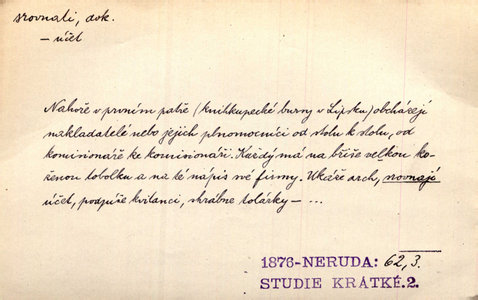 srovnati, dok.
– účet
Nahoře v prvním patře (knihkupecké bursy v Lipsku) obcházejí
nakladatelé nebo jejich plnomocníci od stolu k stolu, od
komisionáře ke komisionáři. Každý má na břiše velkou ko-
ženou tobolku a na té napis své firmy. Ukáže arch, srovnají
účet, podpíše kvitanci, shrábne tolárky – ...
1876-NERUDA: 62,3.
STUDIE KRÁTKÉ.2.